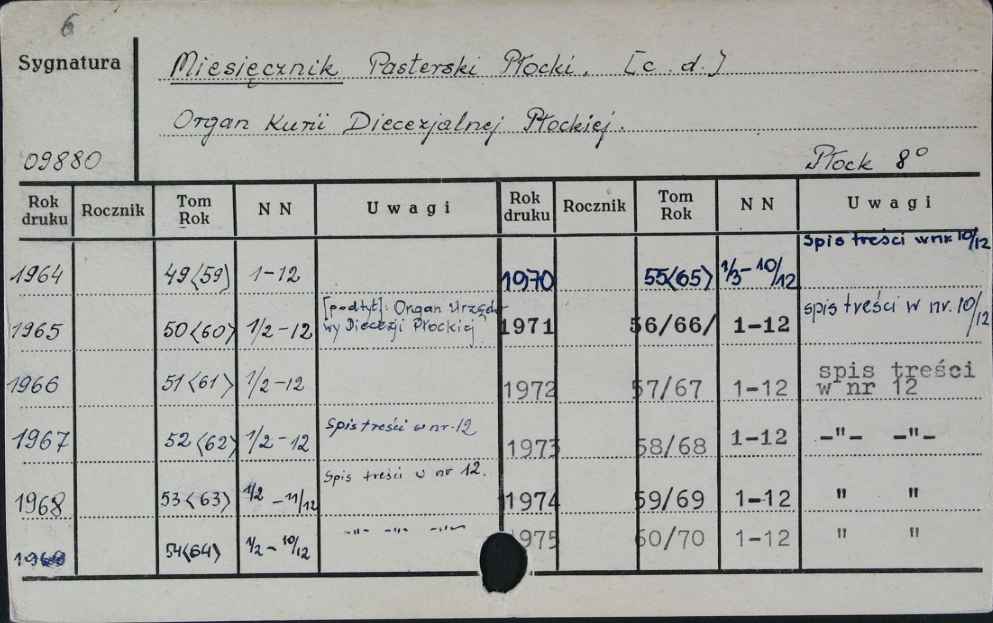 6
Sygnatura
Miesięcznik Pasterski Płocki. [c.d.]
Organ Kurii Diecezjalnej Płockiej.
09880
Płock 8°
Rok druku Rocznik Tom Rok N N Uwagi Rok druku Rocznik Tom Rok N N Uwagi
1964 49<59> 1-12
1970 55<65> 1/3-10/12 spis treści w nr 10/12
1965 50<60> 1/2-12 [podtyt]: Organ Urzędowy Diecezji Płockiej
1971 56/66/ 1-12 spis treści w nr. 10/12
1966 51<61> 1/2-12
1972 57/67 1-12 spis treści w nr 12
1967 52<62> 1/2-12 Spis treści w nr. 12
1973 58/68 1-12 -"- -"-
1968 53<63> 1/2-11/12 Spis treści w nr 12.
1974 59/69 1-12 " "
1969 54<64> 1/2-10/12 -"- -"- -"-
1975 60/70 1-12 " "